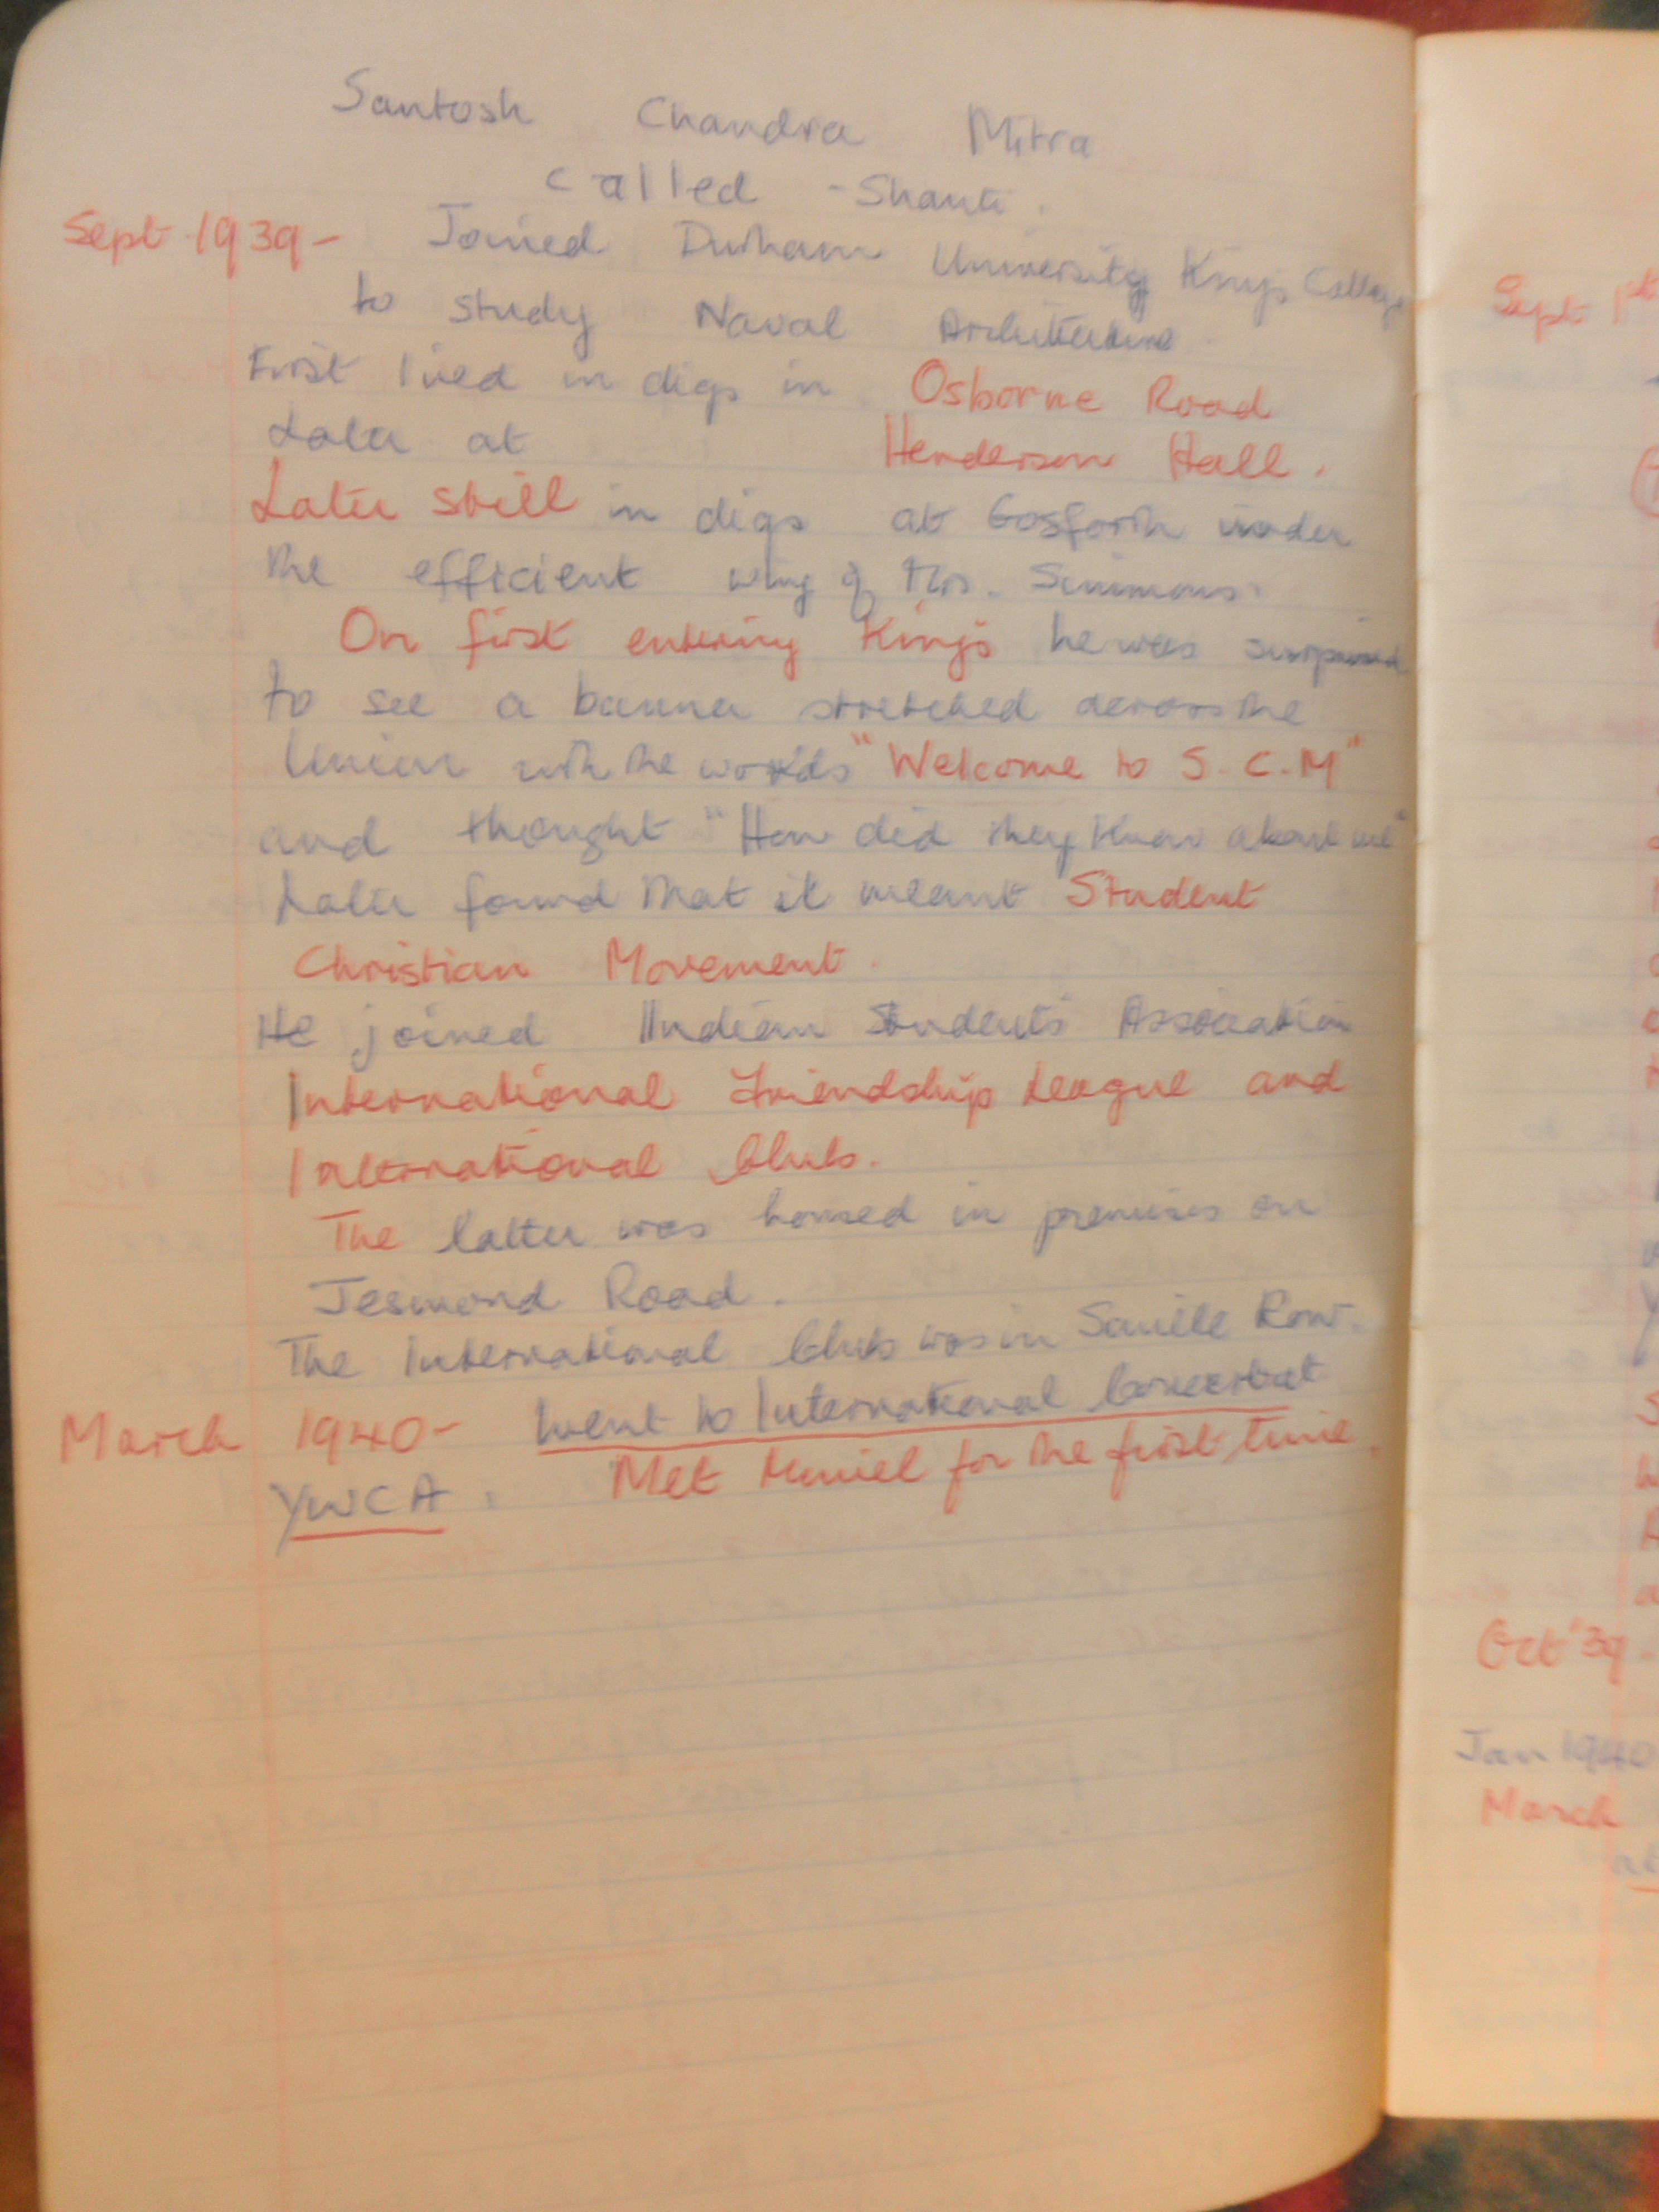 Santosh Chandra Mitra
called - Shanti.
Sept 1939 - Joined Durham University Kings College
to study Naval Architecture
First lived in digs in Osborne Road
Later at Henderson Hall.
Later still in digs at Gosforth under
the efficient wing of Mrs. Simmons.
On first entering Kings he was surprised
to see a banner stretched across the
Union with the words "Welcome to S.C.M"
and thought "How did they know about me"
Later found that it meant Student
Christian Movement.
He joined Indian Students' Association
International Friendship League and
International Club.
The latter was housed in premises on
Jesmond Road.
The International Club was in Saville Row.
March 1940 - Went to International Concert at
YWCA. Met Muriel for the first time.
Sept 1st
Oct '39.
Jan 1940
March
at